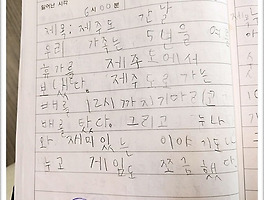 일어난 시각 6시 00분
제목: 제주도 간 날
우리 가족는 5년을 여름
휴가를 제주도에서
보냈다. 제주도로 가는
배를 12시까지기다
배를 탔다. 그리고 누나
와 재미있는 이야기도나
누고 게임도 쪼끔했다